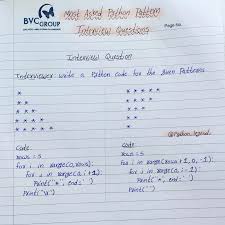 BVC
GROUP
Most Asked Python Pattern
Interview Questions
Page No.
Interview Question
Interviewer write a Python code for the given Patterns
*
* *
* * *
* * * *
* * * * *
* * * * *
* * * *
* * *
* *
*
@Python_legend
Code:
rows = 5
for i in range(0,rows):
for j in range(0,i+1):
Print("*", end=' ')
Print("\n")
Code:
rows = 5
for i in range(rows+1,0,-1):
for j in range(0,i-1):
Print("*", end=' ')
Print(" ")